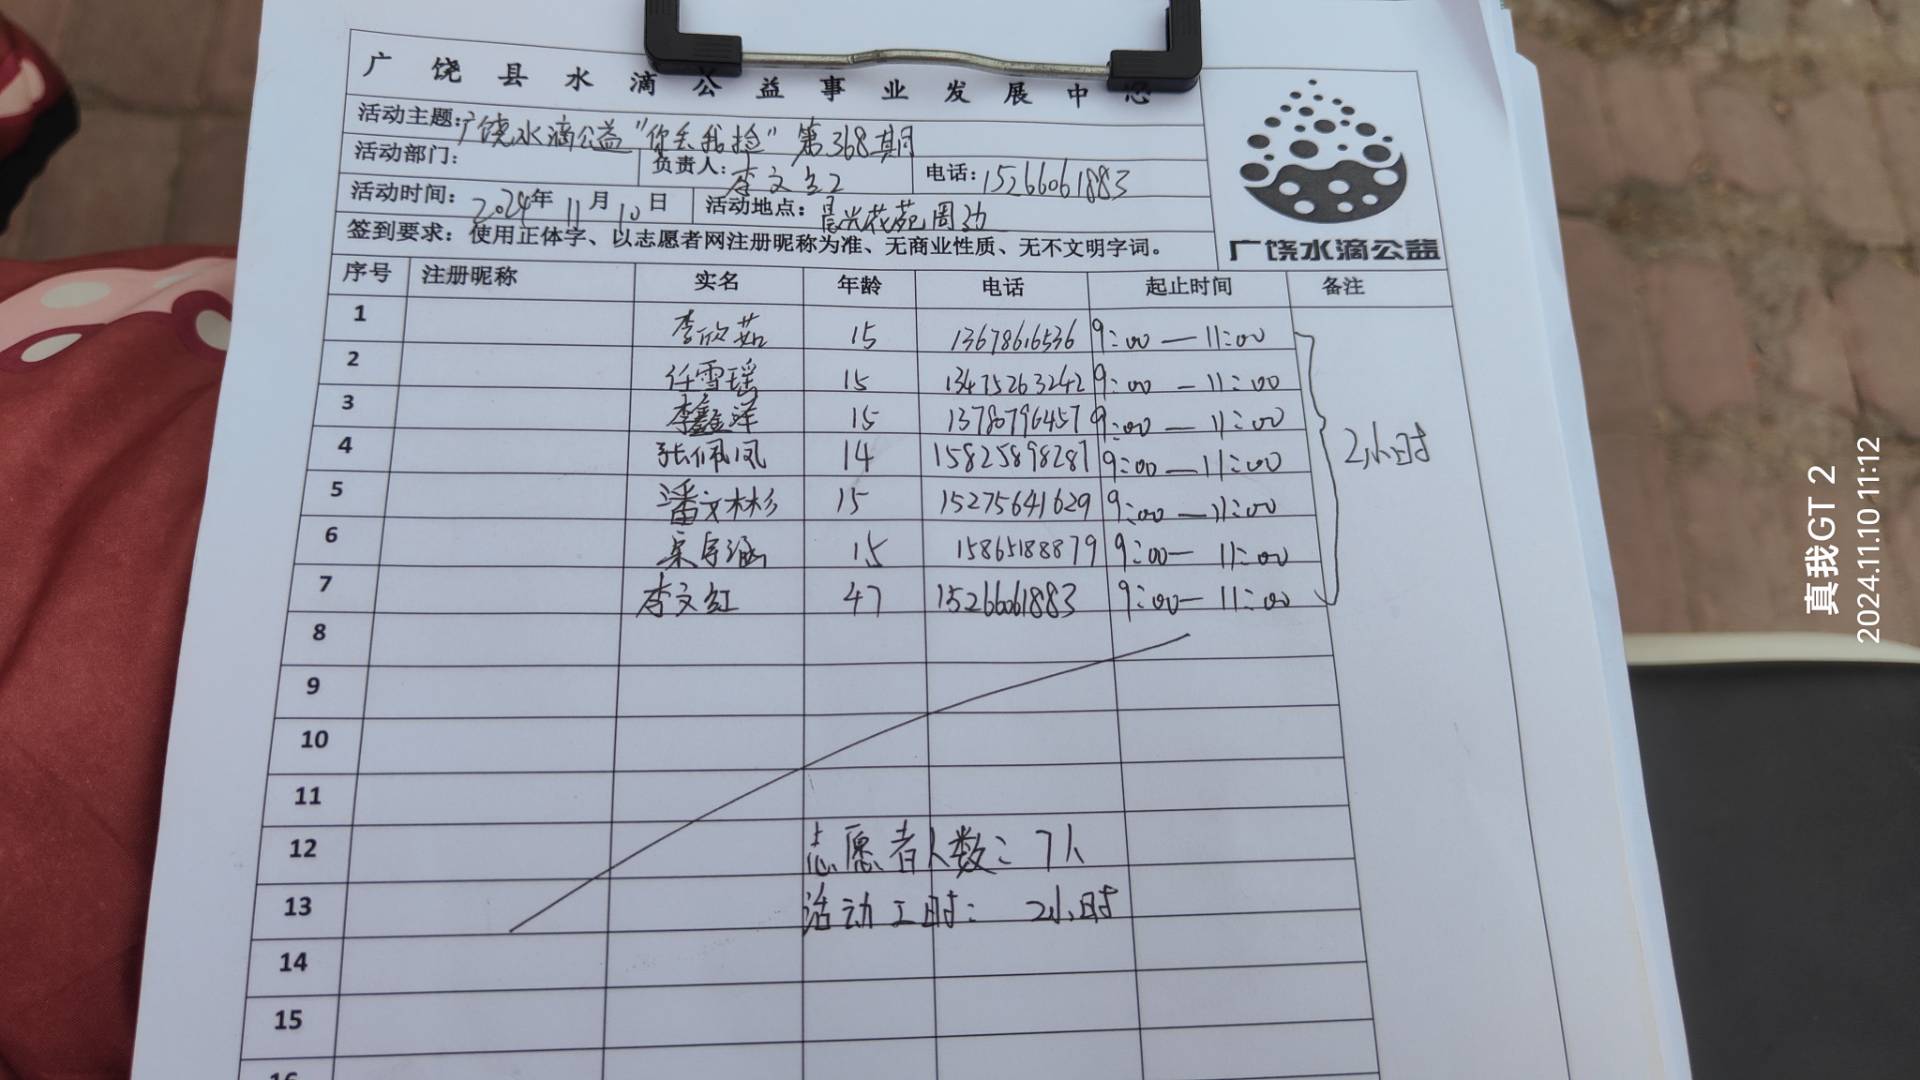 广饶县水滴公益事业发展中心
活动主题:广饶水滴公益“你丢我捡”第368期
活动部门: 负责人:李文红 电话:15266061883
活动时间:2024年11月10日 活动地点:晨光花苑周边
签到要求:使用正体字、以志愿者网注册昵称为准、无商业性质、无不文明字词。
广饶水滴公益
序号 注册昵称 实名 年龄 电话 起止时间 备注
1 李欣茹 15 13678616536 9:00—11:00
2 任雪瑶 15 13475263242 9:00—11:00
3 李鑫洋 15 13780796457 9:00—11:00
4 张佩凤 14 15825898287 9:00—11:00
2小时
5 潘文彬 15 15275641629 9:00—11:00
6 宇涵 15 15865188879 9:00—11:00
7 李文红 47 15266061883 9:00—11:00
8
9
10
11
12 志愿者人数:7人
13 活动工时: 2小时
14
15
16
真我GT 2
2024.11.10 11:12